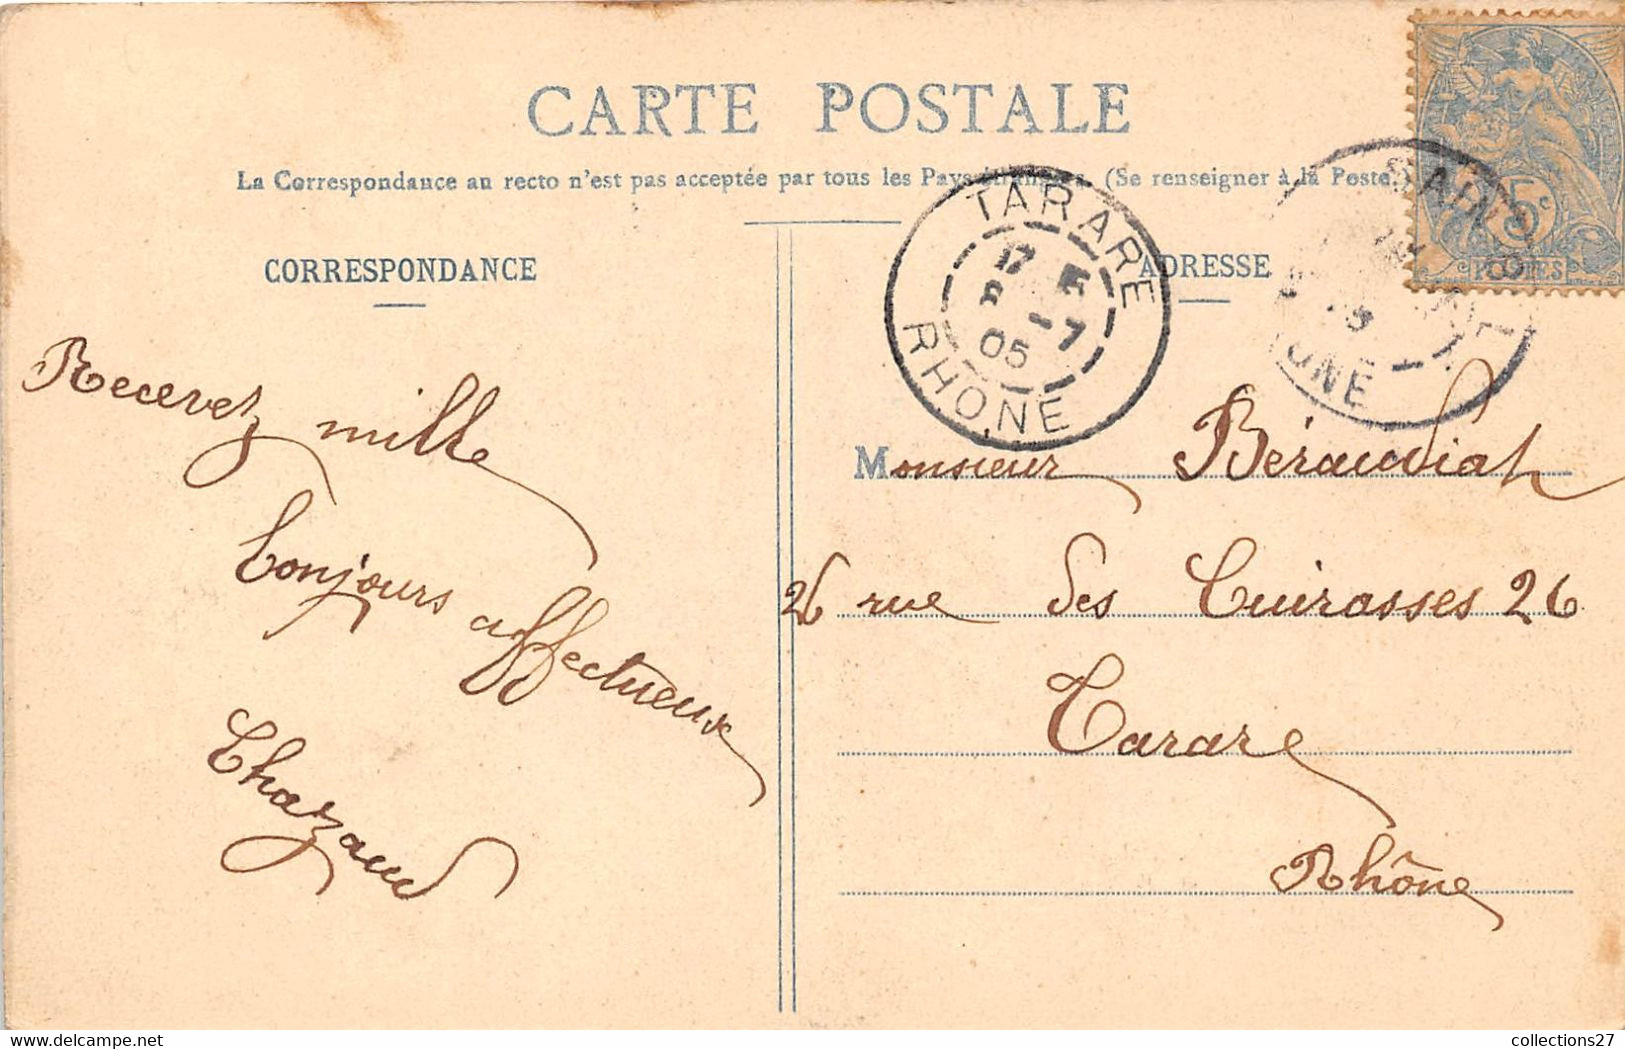 CARTE POSTALE
La Correspondance au recto n'est pas acceptée par tous les Pays étrangers. (Se renseigner à la Poste)
CORRESPONDANCE
ADRESSE
TARARE
17
-7
05
RHONE
5c
POSTES
Recevez mille
bonjours affectueux
Chazaud
Monsieur Béraudiat
26 rue des Cuirasses 26
Tarare
Rhône
delcampe.net
collections27